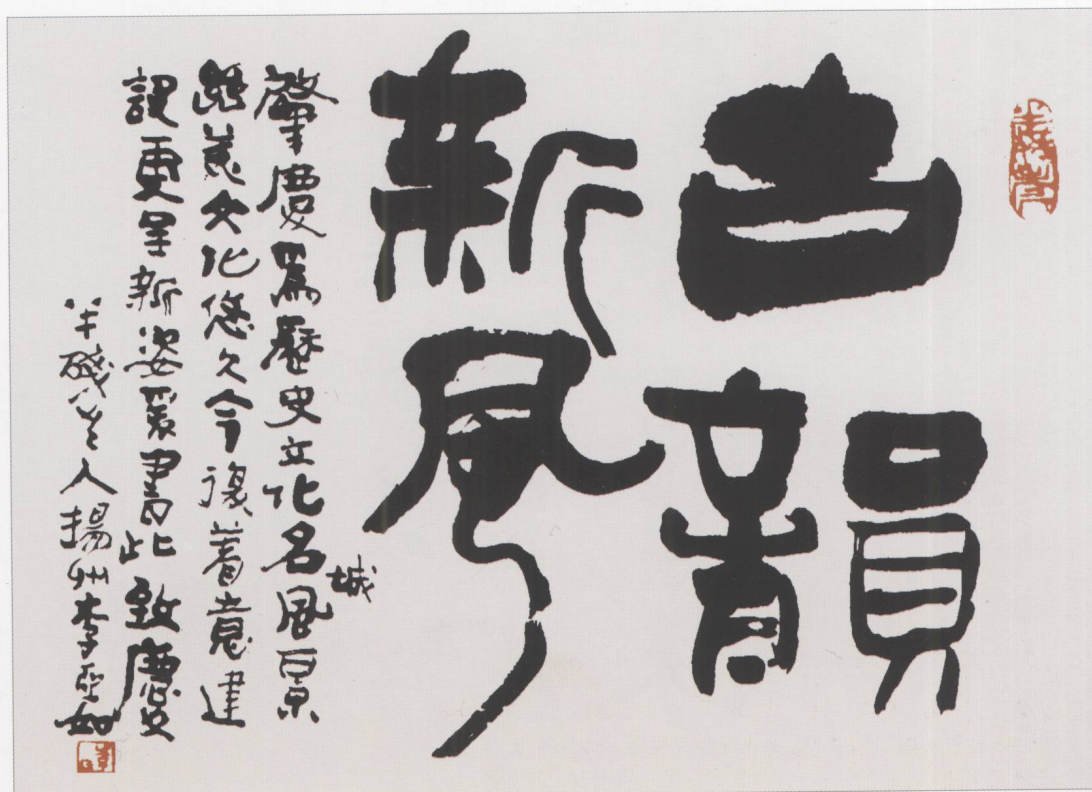 古韻
新風
肇慶爲歷史文化名城風景
美文化悠久今復着意建
設更呈新姿爰書此致慶
半殘老人揚州李亞如